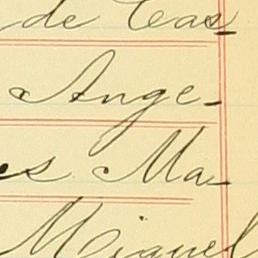 de Cas-
Ange-
s Ma-
Miguel